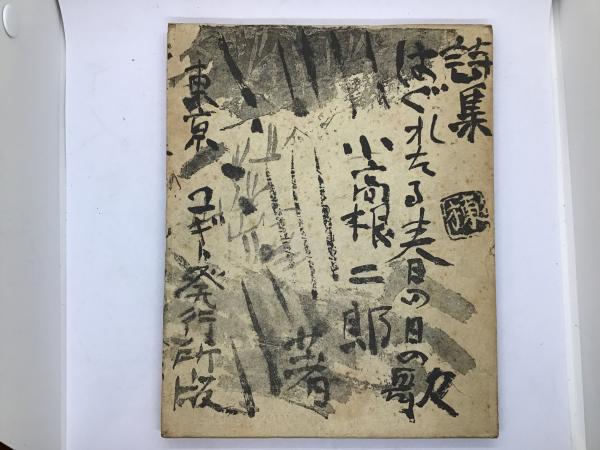 詩集
はぐれたる春の日の歌
小高根二郎
著
東京 コギト発行所版